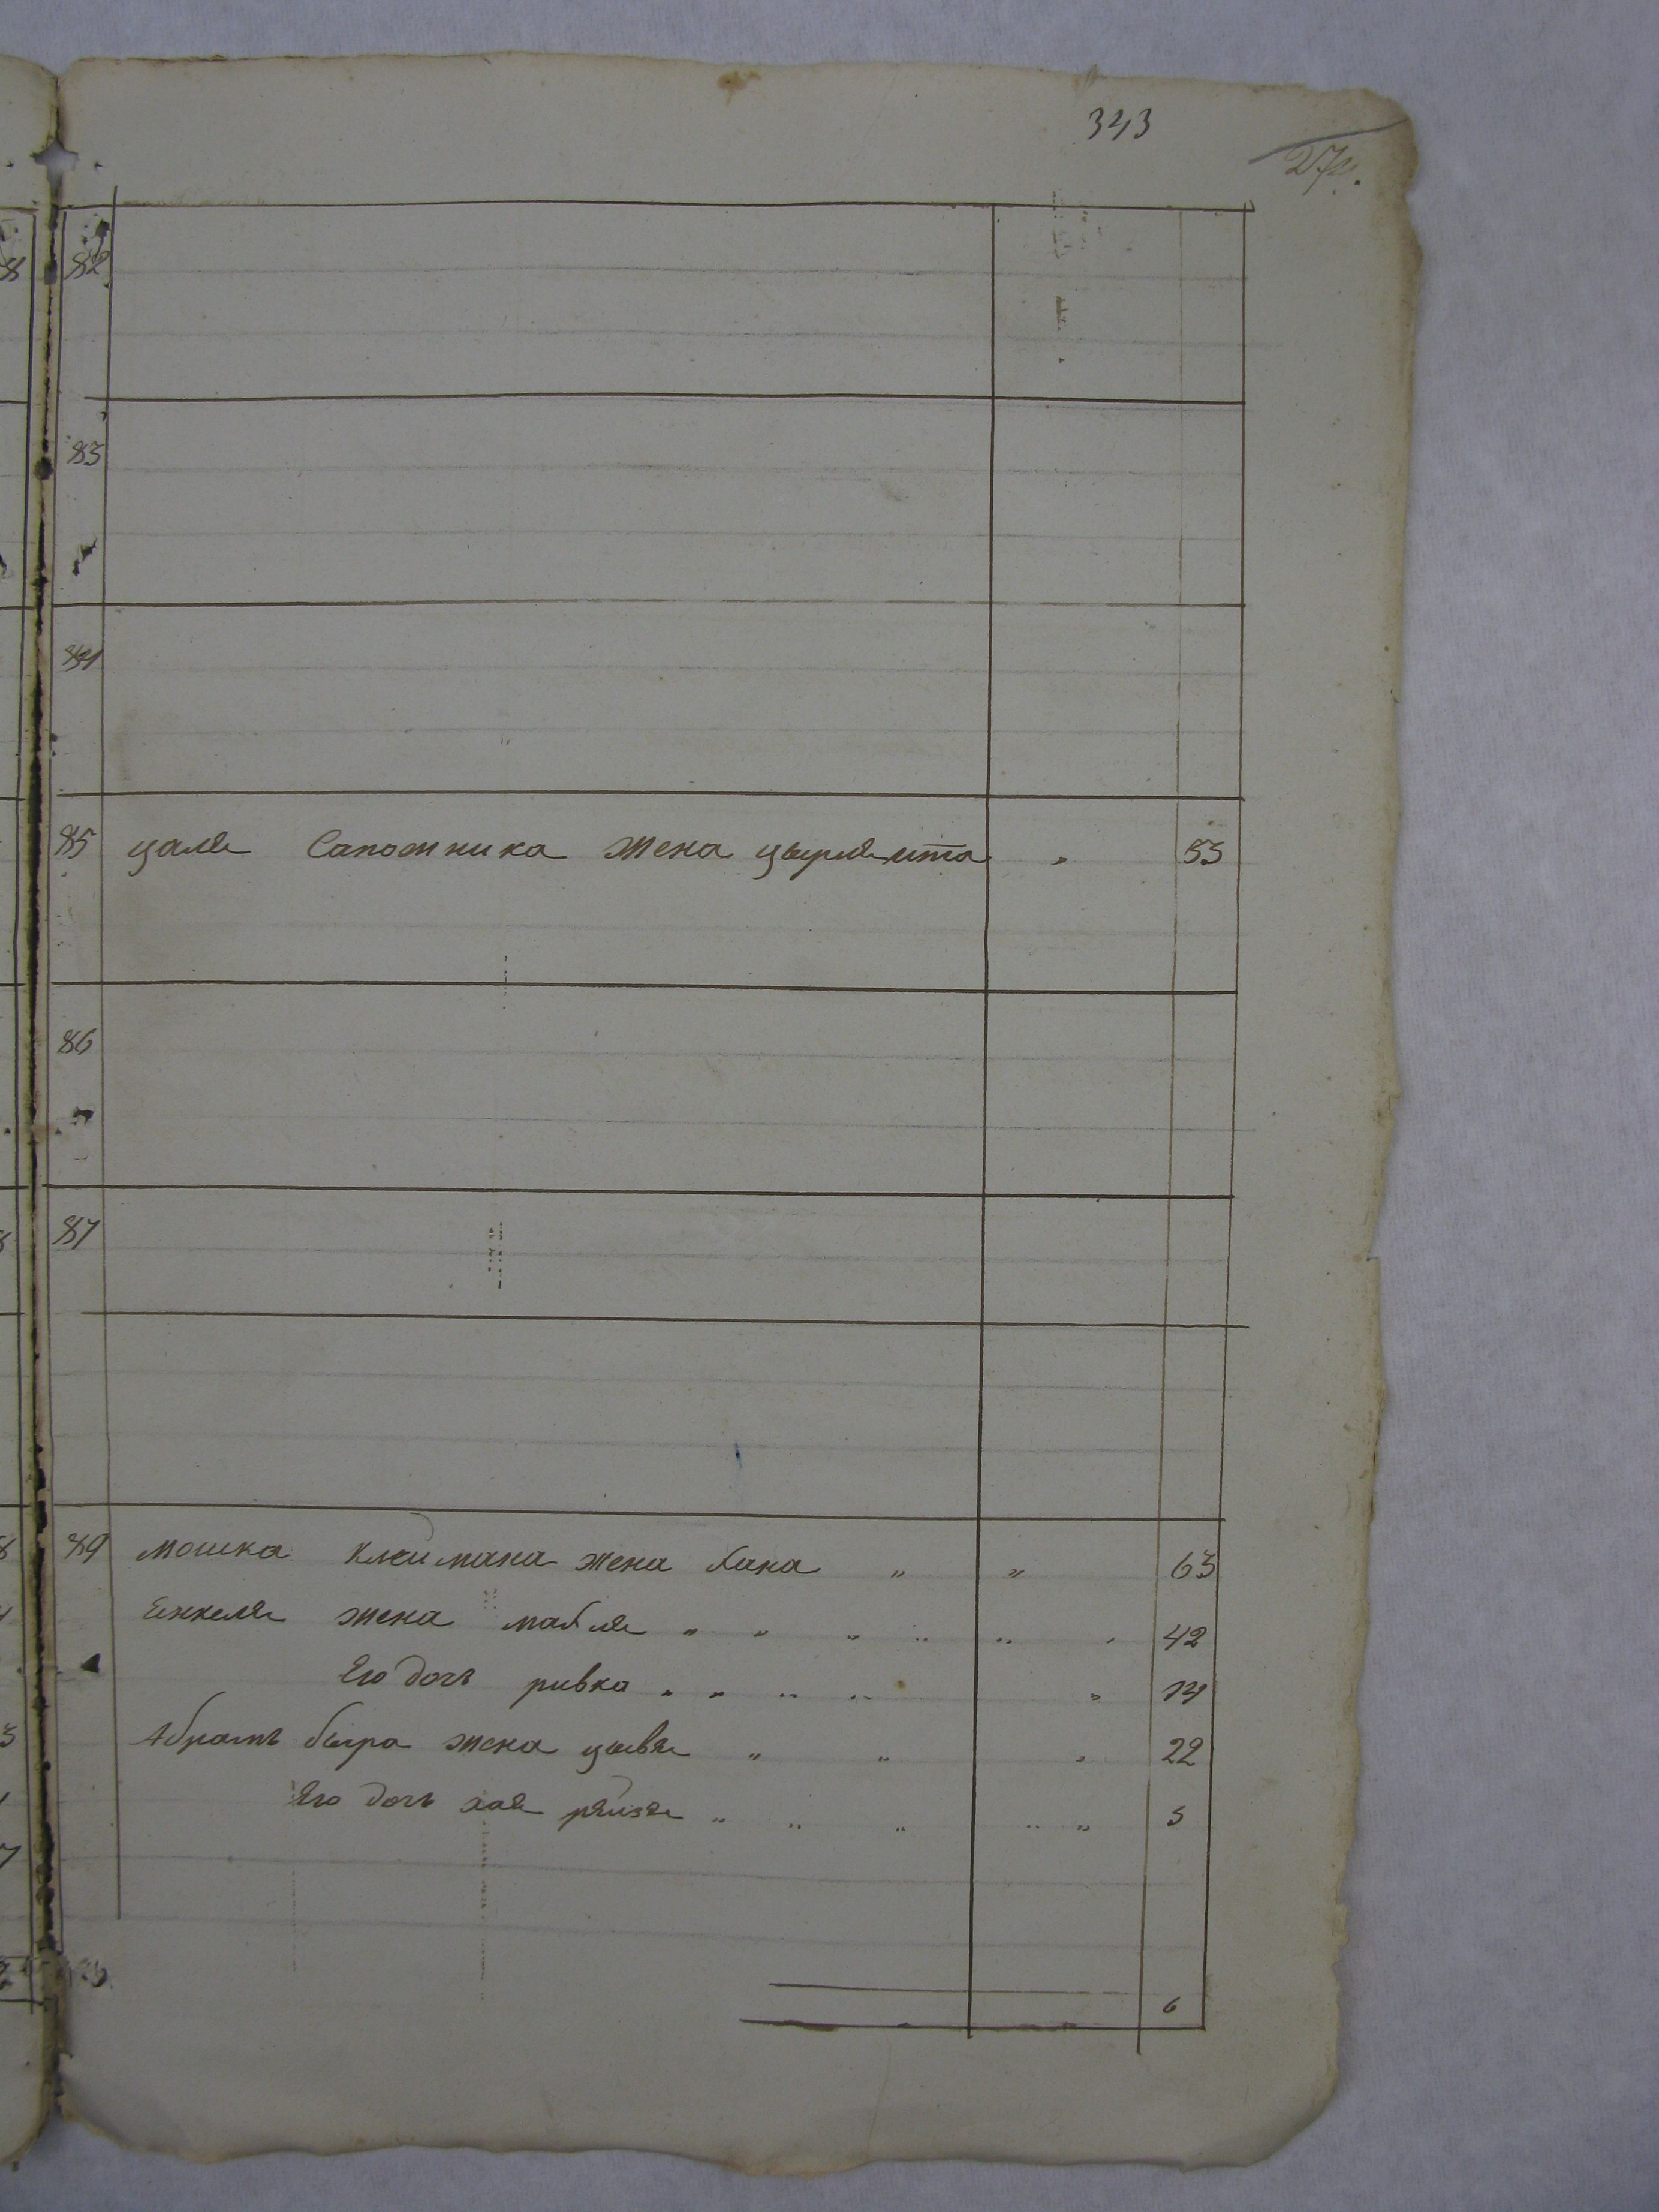 343
274.
82
83
84
85 цаля Сапожника жена цырля ита „ 53
86
87
89 мошка Клеймана жена Хана „ „ 63
Еннкеля жена махля „ „ „ „ „ „ 42
Его дочь ривка „ „ „ „ „ 14
Абрамъ бера жена цывя „ „ „ 22
Его дочь хая рейзя „ „ „ „ „ 5
6